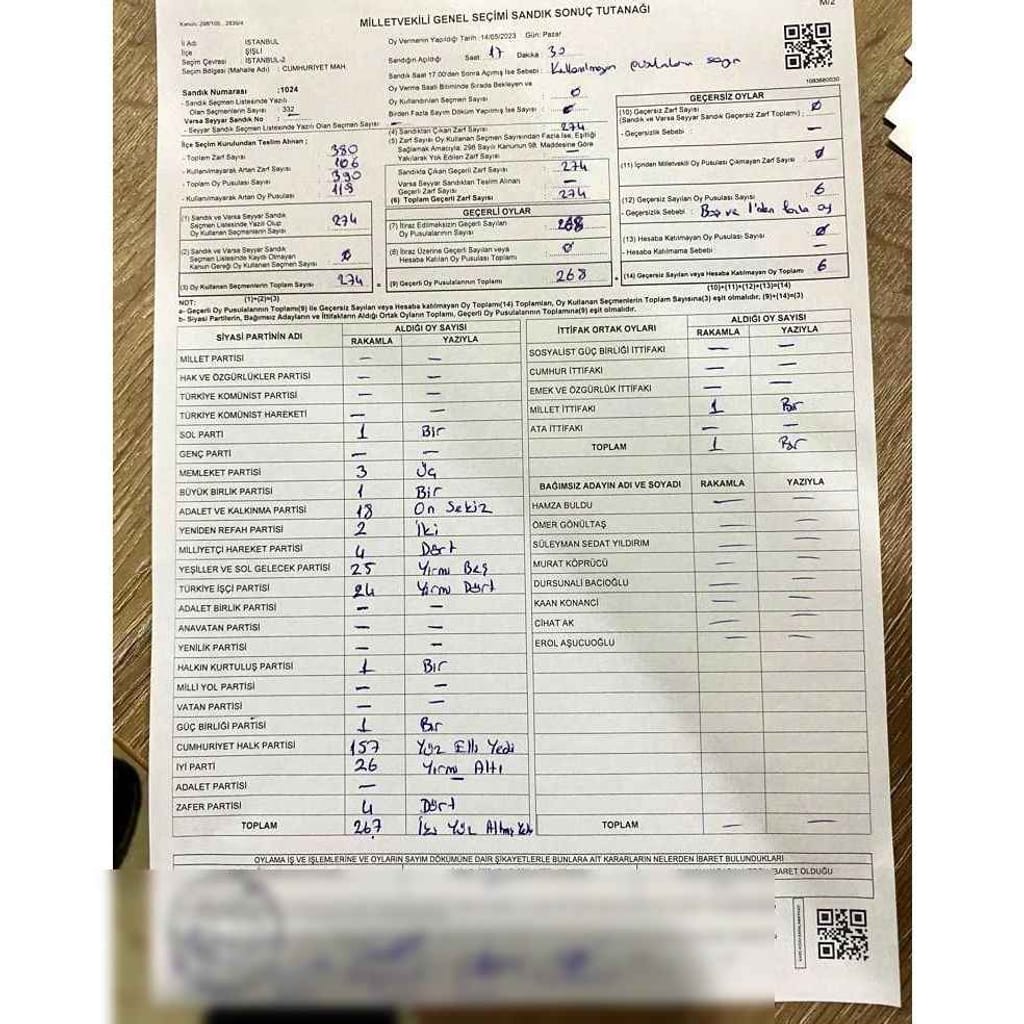 Kanun: 298/105 , 2839/4
M/2
MİLLETVEKİLİ GENEL SEÇİMİ SANDIK SONUÇ TUTANAĞI
İl Adı : İSTANBUL
İlçe : ŞİŞLİ
Seçim Çevresi : İSTANBUL-2
Seçim Bölgesi (Mahalle Adı) : CUMHURİYET MAH.
Sandık Numarası :1024
- Sandık Seçmen Listesinde Yazılı
Olan Seçmenlerin Sayısı : 332
Varsa Seyyar Sandık No : —
- Seyyar Sandık Seçmen Listesinde Yazılı Olan Seçmen Sayısı : —
İlçe Seçim Kurulundan Teslim Alınan ;
- Toplam Zarf Sayısı : 380
- Kullanılmayarak Artan Zarf Sayısı : 106
- Toplam Oy Pusulası Sayısı : 390
- Kullanılmayarak Artan Oy Pusulası : 119
(1) Sandık ve Varsa Seyyar Sandık
Seçmen Listesinde Yazılı Olup
Oy Kullanan Seçmenlerin Sayısı : 274
(2) Sandık ve Varsa Seyyar Sandık
Seçmen Listesinde Kayıtlı Olmayan
Kanun Gereği Oy Kullanan Seçmen Sayısı : 0
(3) Oy Kullanan Seçmenlerin Toplam Sayısı : 274
(1)+(2)=(3)
Oy Vermenin Yapıldığı Tarih :14/05/2023 Gün: Pazar
Sandığın Açıldığı Saat : 17 Dakika : 30
Sandık Saat 17.00'den Sonra Açılmış İse Sebebi : Kullanılmayan pusulaların sayı
Oy Verme Saati Bitiminde Sırada Bekleyen ve
Oy Kullandırılan Seçmen Sayısı : 0
Birden Fazla Sayım Döküm Yapılmış İse Sayısı :
(4) Sandıktan Çıkan Zarf Sayısı : 274
(5) Zarf Sayısı Oy Kullanan Seçmen Sayısından Fazla İse, Eşitliği
Sağlamak Amacıyla; 298 Sayılı Kanunun 98. Maddesine Göre
Yakılarak Yok Edilen Zarf Sayısı : —
Sandıkta Çıkan Geçerli Zarf Sayısı : 274
Varsa Seyyar Sandıktan Teslim Alınan
Geçerli Zarf Sayısı : —
(6) Toplam Geçerli Zarf Sayısı : 274
GEÇERLİ OYLAR
(7) İtiraz Edilmeksizin Geçerli Sayılan
Oy Pusulalarının Sayısı : 268
(8) İtiraz Üzerine Geçerli Sayılan veya
Hesaba Katılan Oy Pusulası Toplamı : 0
(9) Geçerli Oy Pusulalarının Toplamı : 268
1083680030
GEÇERSİZ OYLAR
(10) Geçersiz Zarf Sayısı
(Sandık ve Varsa Seyyar Sandık Geçersiz Zarf Toplamı) : 0
- Geçersizlik Sebebi : —
(11) İçinden Milletvekili Oy Pusulası Çıkmayan Zarf Sayısı : 0
(12) Geçersiz Sayılan Oy Pusulası Sayısı : 6
- Geçersizlik Sebebi : Boş ve 1'den fazla oy
(13) Hesaba Katılmayan Oy Pusulası Sayısı : 0
- Hesaba Katılmama Sebebi : —
(14) Geçersiz Sayılan veya Hesaba Katılmayan Oy Toplamı : 6
(10)+(11)+(12)+(13)=(14)
NOT:
a- Geçerli Oy Pusulalarının Toplamı(9) ile Geçersiz Sayılan veya Hesaba katılmayan Oy Toplamı(14) Toplamları, Oy Kullanan Seçmenlerin Toplam Sayısına(3) eşit olmalıdır. (9)+(14)=(3)
b- Siyasi Partilerin, Bağımsız Adayların ve İttifakların Aldığı Ortak Oyların Toplamı, Geçerli Oy Pusulalarının Toplamına(9) eşit olmalıdır.
SİYASİ PARTİNİN ADI ALDIĞI OY SAYISI
RAKAMLA YAZIYLA
MİLLET PARTİSİ — —
HAK VE ÖZGÜRLÜKLER PARTİSİ — —
TÜRKİYE KOMÜNİST PARTİSİ — —
TÜRKİYE KOMÜNİST HAREKETİ — —
SOL PARTİ 1 Bir
GENÇ PARTİ — —
MEMLEKET PARTİSİ 3 Üç
BÜYÜK BİRLİK PARTİSİ 1 Bir
ADALET VE KALKINMA PARTİSİ 18 On Sekiz
YENİDEN REFAH PARTİSİ 2 İki
MİLLİYETÇİ HAREKET PARTİSİ 4 Dört
YEŞİLLER VE SOL GELECEK PARTİSİ 25 Yirmi Beş
TÜRKİYE İŞÇİ PARTİSİ 24 Yirmi Dört
ADALET BİRLİK PARTİSİ — —
ANAVATAN PARTİSİ — —
YENİLİK PARTİSİ — —
HALKIN KURTULUŞ PARTİSİ 1 Bir
MİLLİ YOL PARTİSİ — —
VATAN PARTİSİ — —
GÜÇ BİRLİĞİ PARTİSİ 1 Bir
CUMHURİYET HALK PARTİSİ 157 Yüz Elli Yedi
İYİ PARTİ 26 Yirmi Altı
ADALET PARTİSİ —
ZAFER PARTİSİ 4 Dört
TOPLAM 267 İki Yüz Altmış Yedi
İTTİFAK ORTAK OYLARI ALDIĞI OY SAYISI
RAKAMLA YAZIYLA
SOSYALİST GÜÇ BİRLİĞİ İTTİFAKI — —
CUMHUR İTTİFAKI — —
EMEK VE ÖZGÜRLÜK İTTİFAKI — —
MİLLET İTTİFAKI 1 Bir
ATA İTTİFAKI — —
TOPLAM 1 Bir
BAĞIMSIZ ADAYIN ADI VE SOYADI RAKAMLA YAZIYLA
HAMZA BULDU — —
ÖMER GÖNÜLTAŞ — —
SÜLEYMAN SEDAT YILDIRIM — —
MURAT KÖPRÜCÜ — —
DURSUNALİ BACIOĞLU — —
KAAN KONANCİ — —
CİHAT AK — —
EROL AŞUCUOĞLU — —
TOPLAM — —
OYLAMA İŞ VE İŞLEMLERİNE VE OYLARIN SAYIM DÖKÜMÜNE DAİR ŞİKAYETLERLE BUNLARA AİT KARARLARIN NELERDEN İBARET BULUNDUKLARI
BARET OLDUĞU